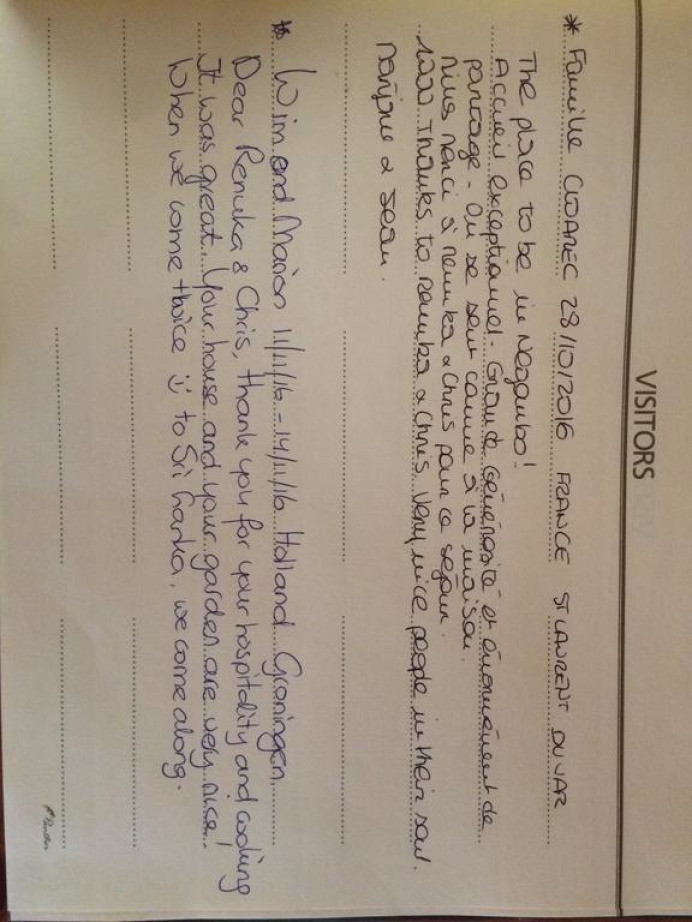 VISITORS
* Famille CLOAREC 28/10/2016 FRANCE ST LAURENT DU VAR
The place to be in Negombo!
Accueil exceptionnel - Grande Générosité et énormément de
partage - on se sent comme à la maison.
Mille merci à Renuka & Chris pour ce séjour.
1000 Thanks to Renuka & Chris. Very nice people in their soul.
& Sean.
Wim and Marion 11/11/16 - 14/11/16 Holland Groningen.
Dear Renuka & Chris, thank you for your hospitality and cooking
It was great. Your house and your garden are very nice!
When we come thwice :) to Sri Lanka, we come along.